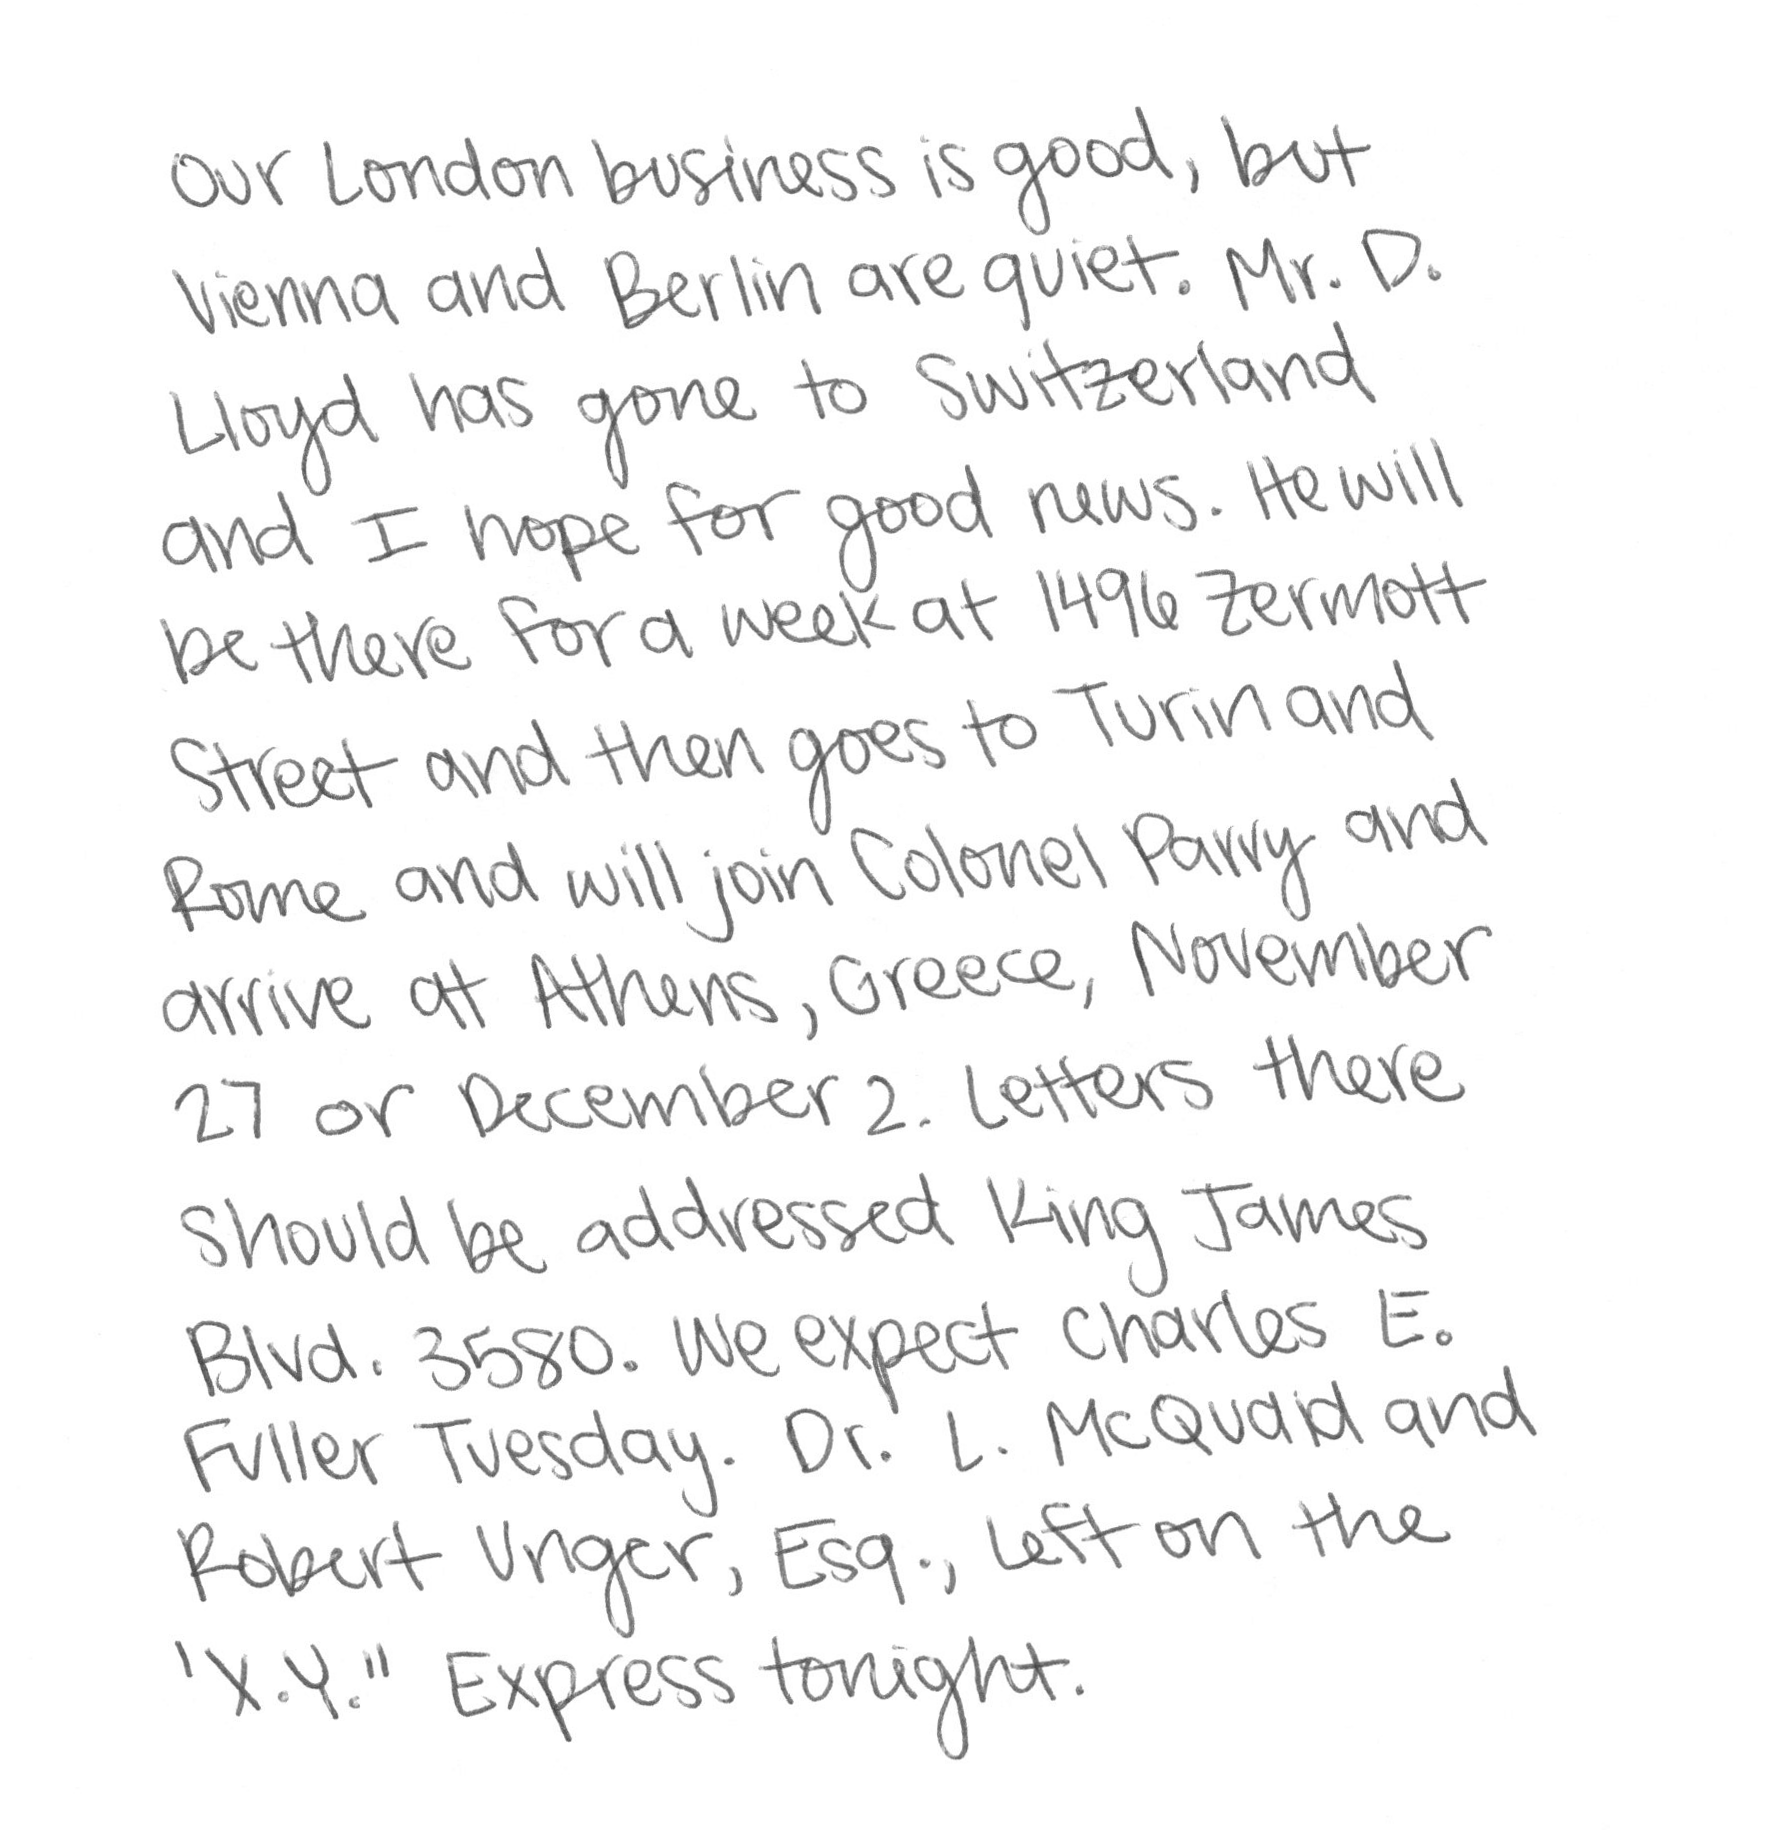 Our London business is good, but
Vienna and Berlin are quiet. Mr. D.
Lloyd has gone to Switzerland
and I hope for good news. He will
be there for a week at 1496 Zermott
Street and then goes to Turin and
Rome and will join Colonel Parry and
arrive at Athens, Greece, November
27 or December 2. Letters there
should be addressed King James
Blvd. 3580. We expect Charles E.
Fuller Tuesday. Dr. L. McQuaid and
Robert Unger, Esq., left on the
'X.Y." Express tonight.